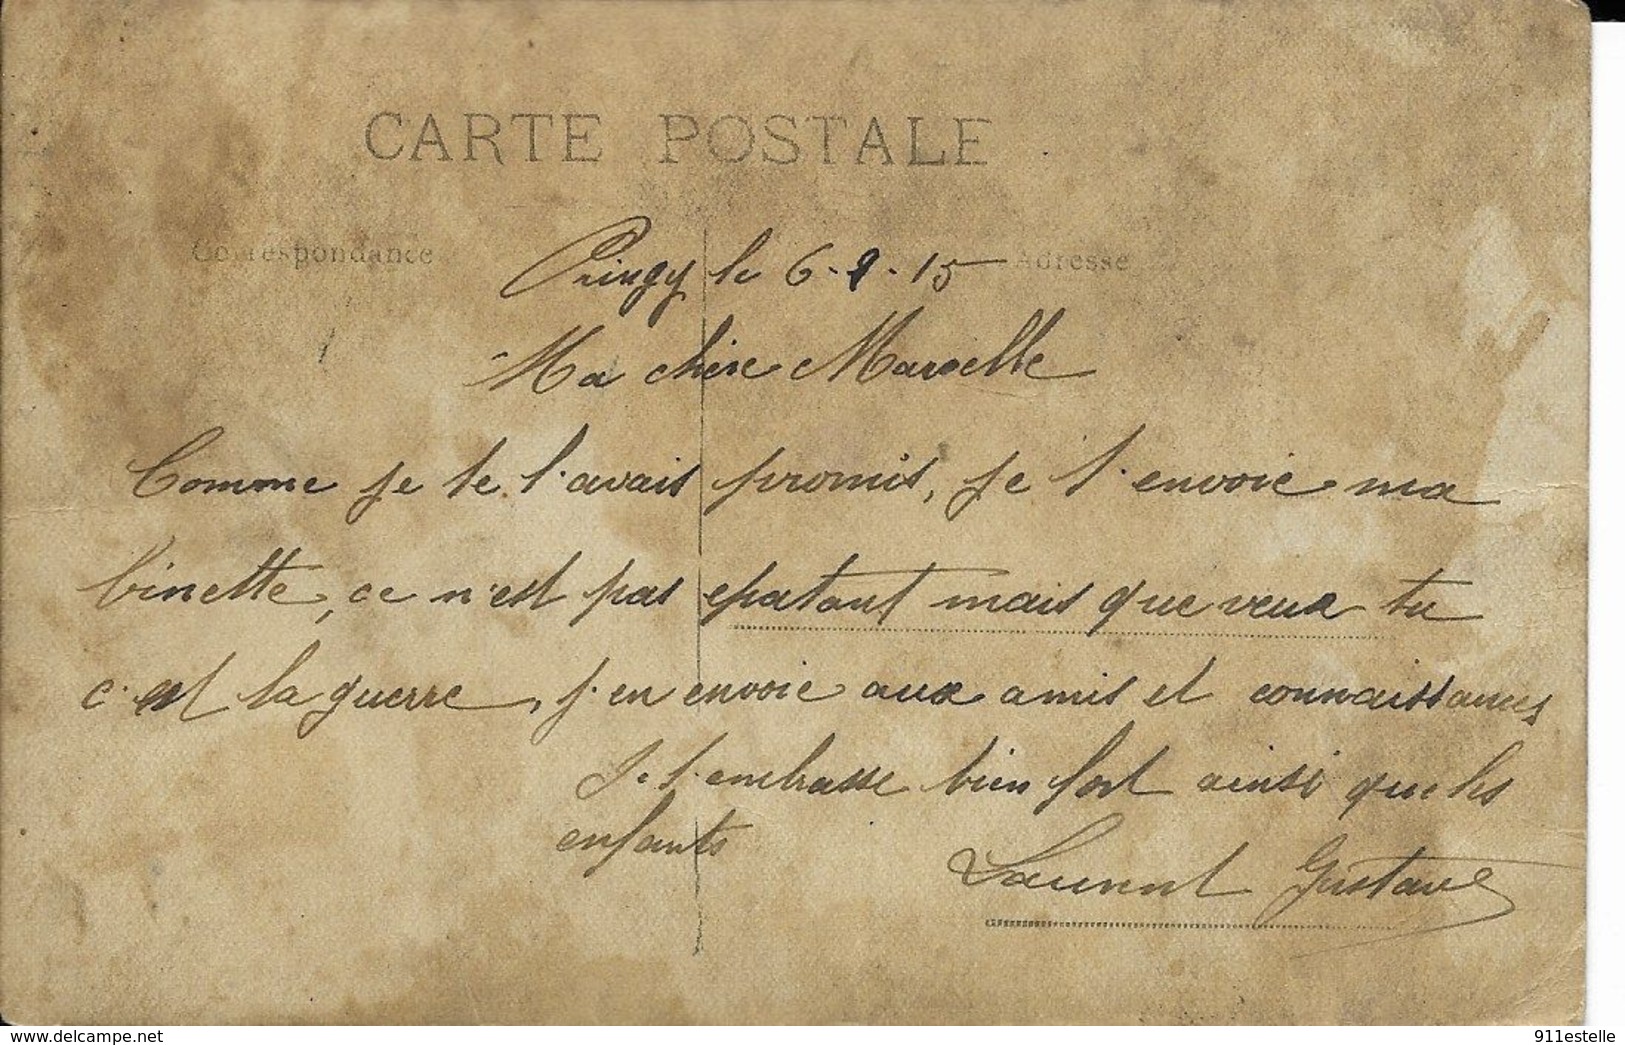 CARTE POSTALE
Correspondance
Adresse
Pringy le 6-9-15
Ma chère Marcelle
Comme je te l'avais promis, je t'envoie ma
binette, ce n'est pas epatant mais que veux tu
c'est la guerre, j'en envoie aux amis et connaissances
Je t'embrasse bien fort ainsi que les
enfants
Laurent Gustave
delcampe.net
911estelle